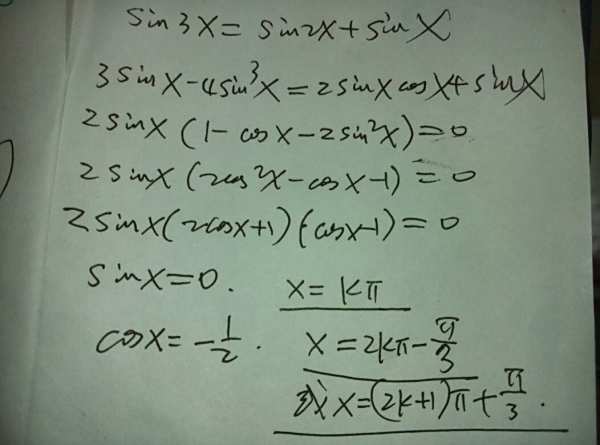 sin3x = sin2x + sinx
3sinx - 4sin³x = 2sinx cosx + sinx
2sinx (1 - cosx - 2sin²x) = 0
2sinx (2cos²x - cosx - 1) = 0
2sinx (2cosx + 1)(cosx - 1) = 0
sinx = 0. x = kπ
cosx = -1/2. x = 2kπ - π/3
x = (2k+1)π + π/3.